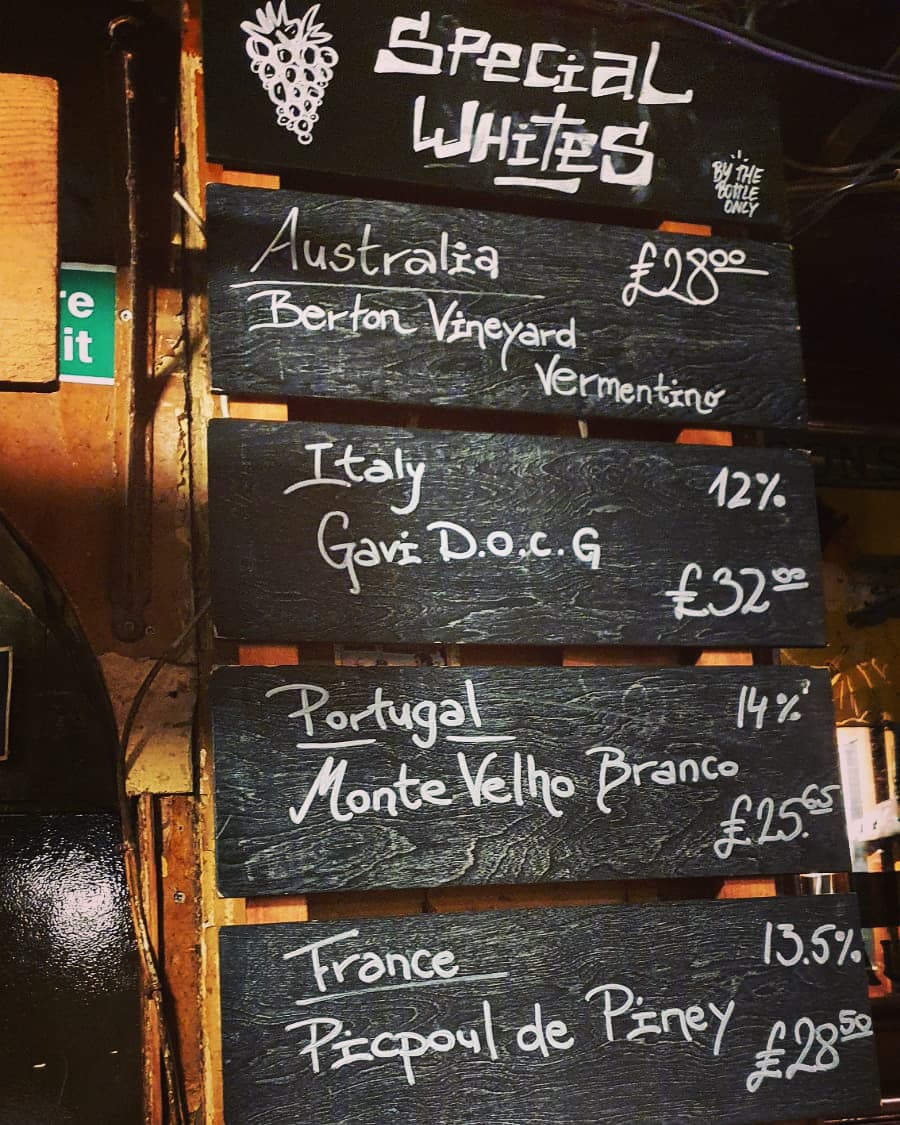 Special
Whites
BY THE
BOTTLE
ONLY
Australia £28.00
Berton Vineyard
Vermentino
Italy 12%
Gavi D.O.C.G
£32.00
Portugal 14%
Monte Velho Branco
£25.65
France 13.5%
Picpoul de Piney
£28.50
re
it